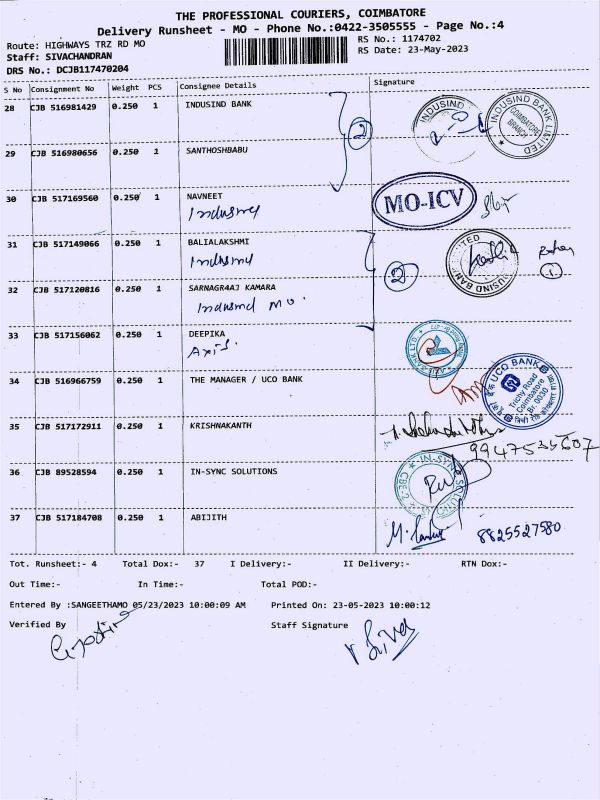 THE PROFESSIONAL COURIERS, COIMBATORE
Delivery Runsheet - MO - Phone No.:0422-3505555 - Page No.:4
Route: HIGHWAYS TRZ RD MO
RS No.: 1174702
Staff: SIVACHANDRAN
RS Date: 23-May-2023
DRS No.: DCJB117470204
S No Consignment No Weight PCS Consignee Details Signature
28 CJB 516981429 0.250 1 INDUSIND BANK
INDUSIND
INDUSIND BANK LIMITED
COIMBATORE BRANCH
2
29 CJB 516980656 0.250 1 SANTHOSHBABU
30 CJB 517169560 0.250 1 NAVNEET
Indusind
MO-ICV
31 CJB 517149066 0.250 1 BALIALAKSHMI
Indusind
2
1
32 CJB 517120816 0.250 1 SARNAGR4AJ KAMARA
Indusind MO
33 CJB 517156062 0.250 1 DEEPIKA
Axis
34 CJB 516966759 0.250 1 THE MANAGER / UCO BANK
UCO BANK
Trichy Road
Coimbatore
Br. 0030
35 CJB 517172911 0.250 1 KRISHNAKANTH
9947535607
36 CJB 89528594 0.250 1 IN-SYNC SOLUTIONS
IN-SYNC SOLUTIONS
CBE-2
37 CJB 517184708 0.250 1 ABIJITH
8825527580
Tot. Runsheet:- 4 Total Dox:- 37 I Delivery:- II Delivery:- RTN Dox:-
Out Time:- In Time:- Total POD:-
Entered By :SANGEETHAMO 05/23/2023 10:00:09 AM Printed On: 23-05-2023 10:00:12
Verified By Staff Signature